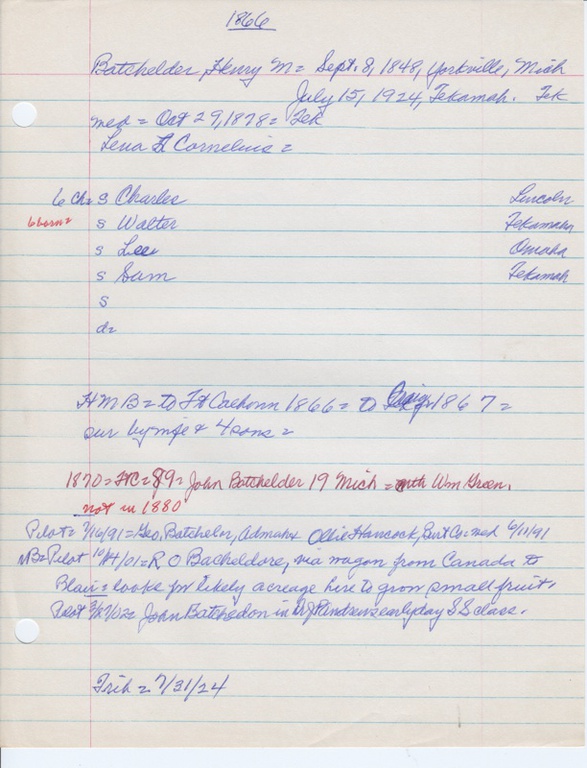 1866
Batchelder, Henry M = Sept. 8, 1848, Yorkville, Mich
July 15, 1924, Tekamah. Tek
med = Oct 29, 1878 = Tek
Lena H Cornelius =
6 Ch = s Charles Lincoln
6 born = s Walter Tekamah
s Lee Omaha
s Sam Tekamah
s
d =
H M B = to Ft Calhoun 1866 = to Craig 1867 =
sur by wife & 4 sons =
1870 = FtC = 89 = John Batchelder 19 Mich = with Wm Green.
not in 1880
Pilot = 7/16/91 = Geo. Batchelor, Admah x Ollie Hancock, Burt Co = med 6/11/91
NB = Pilot 10/4/01 = R O Bacheldore, via wagon from Canada to
Blair = looks for likely acreage here to grow small fruit.
Pilot = John Batchedon in Andrews early day S S class.
Trib = 7/31/24